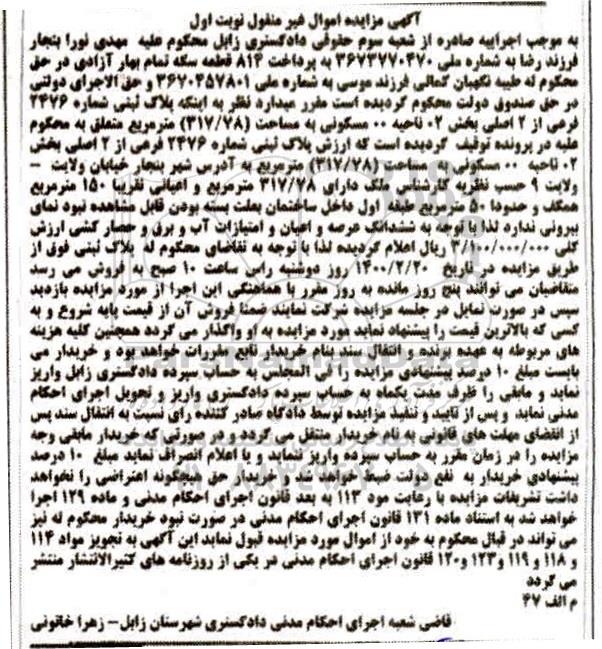 آگهی مزایده اموال غیر منقول نوبت اول
به موجب اجراییه صادره از شعبه سوم حقوقی دادگستری زابل محکوم علیه مهدی نورا بنجار
فرزند رضا به شماره ملی ۳۶۷۳۷۷۰۴۷۰ به پرداخت ۸۱۴ قطعه سکه تمام بهار آزادی در حق
محکوم له طیبه نگهبان کمالی فرزند موسی به شماره ملی ۳۶۷۰۴۵۷۸۰۱ و حق الاجرای دولتی
در حق صندوق دولت محکوم گردیده است مقرر میدارد نظر به اینکه پلاک ثبتی شماره ۲۴۷۶
فرعی از ۲ اصلی بخش ۰۲ ناحیه ۰۰ مسکونی به مساحت (۳۱۷/۷۸) مترمربع متعلق به محکوم
علیه در پرونده توقیف گردیده است که ارزش پلاک ثبتی شماره ۲۴۷۶ فرعی از ۲ اصلی بخش
۰۲ ناحیه ۰۰ مسکونی به مساحت (۳۱۷/۷۸) مترمربع به آدرس شهر بنجار خیابان ولایت –
ولایت ۹ حسب نظریه کارشناس ملک دارای ۳۱۷/۷۸ مترمربع و اعیانی تقریبا ۱۵۰ مترمربع
همکف و حدودا ۵۰ مترمربع طبقه اول داخل ساختمان بعلت بسته بودن قابل مشاهده نبود نمای
بیرونی ندارد لذا با توجه به ششدانگ عرصه و اعیان و امتیازات آب و برق و حصار کشی ارزش
کلی ۳/۱۰۰/۰۰۰/۰۰۰ ریال اعلام گردیده لذا با توجه به تقاضای محکوم له پلاک ثبتی فوق از
طریق مزایده در تاریخ ۱۴۰۰/۲/۲۰ روز دوشنبه راس ساعت ۱۰ صبح به فروش می رسد
متقاضیان می توانند پنج روز مانده به روز مقرر با هماهنگی این اجرا از مورد مزایده بازدید
سپس در صورت تمایل در جلسه مزایده شرکت نمایند ضمنا فروش آن از قیمت پایه شروع و به
کسی که بالاترین قیمت را پیشنهاد نماید مورد مزایده به او واگذار می گردد همچنین کلیه هزینه
های مربوطه به عهده برنده و انتقال سند بنام خریدار تابع مقررات خواهد بود و خریدار می
بایست مبلغ ۱۰ درصد پیشنهادی مزایده را فی المجلس به حساب سپرده دادگستری زابل واریز
نماید و مابقی را ظرف مدت یکماه به حساب سپرده دادگستری واریز و تحویل اجرای احکام
مدنی نماید و پس از تایید و تنفیذ مزایده توسط دادگاه صادر کننده رای نسبت به انتقال سند پس
از انقضای مهلت های قانونی به نام خریدار منتقل می گردد و در صورتی که خریدار مابقی وجه
مزایده را در زمان مقرر به حساب سپرده واریز ننماید و یا اعلام انصراف نماید مبلغ ۱۰ درصد
پیشنهادی خریدار به نفع دولت ضبط خواهد شد و خریدار حق هیچگونه اعتراضی را نخواهد
داشت تشریفات مزایده با رعایت مود ۱۱۳ به بعد قانون اجرای احکام مدنی و ماده ۱۲۹ اجرا
خواهد شد به استناد ماده ۱۳۱ قانون اجرای احکام مدنی در صورت نبود خریدار محکوم له نیز
می تواند در قبال محکوم به خود از اموال مورد مزایده قبول نماید این آگهی به تجویز مواد ۱۱۴
و ۱۱۸ و ۱۱۹ و ۱۲۳ و ۱۲۰ قانون اجرای احکام مدنی در یکی از روزنامه های کثیرالانتشار منتشر
می گردد
م الف ۴۷
قاضی شعبه اجرای احکام مدنی دادگستری شهرستان زابل– زهرا خاتونی